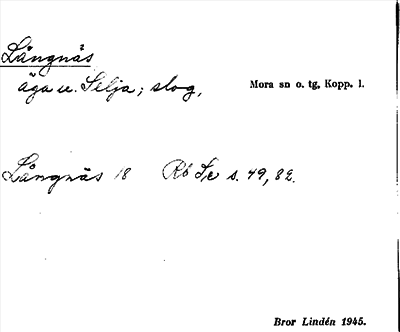 Långnäs
äga u. Selja; slog,
Mora sn o. tg, Kopp. l.
Långnäs 18 Rö Se s. 49, 82.
Bror Lindén 1945.